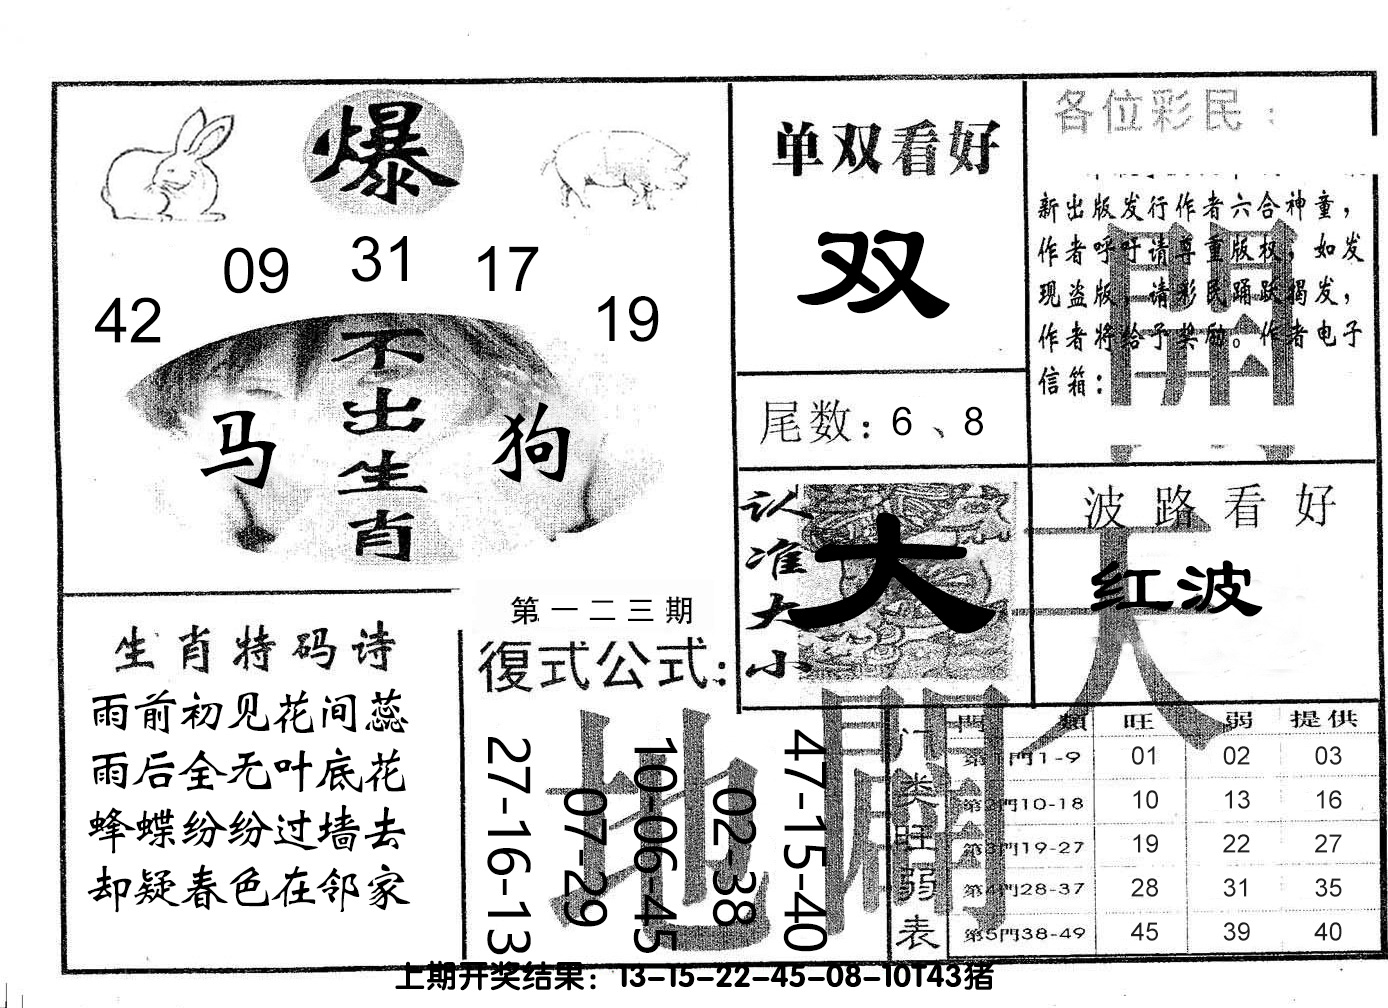 爆
42 09 31 17 19
不出生肖
马 狗
单双看好
双
尾数：6、8
各位彩民：
新出版发行作者六合神童，
作者呼吁请尊重版权，如发
现盗版，请彩民踊跃揭发，
作者将给予奖励。作者电子
信箱：
認准大小
大
波路看好
红波
天
開
地
闢
生肖特码诗
雨前初见花间蕊
雨后全无叶底花
蜂蝶纷纷过墙去
却疑春色在邻家
第一二三期
復式公式：
27-16-13
07-29
10-06-45
02-38
47-15-40
门类旺弱表
門類 旺 弱 提供
第1門1-9 01 02 03
第2門10-18 10 13 16
第3門19-27 19 22 27
第4門28-37 28 31 35
第5門38-49 45 39 40
上期开奖结果：13-15-22-45-08-10T43猪